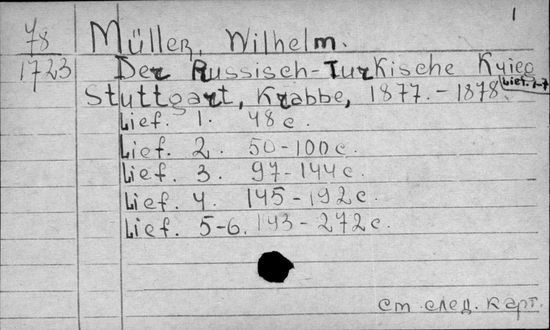 1
48 Müller, Wilhelm.
1723 Der Russisch-Turkische Kyieg
Lief. 1-7
Stuttgart, Krabbe, 1877.-1878.
Lief. 1. 48 c.
Lief. 2. 50-100 c.
Lief. 3. 97-144 c.
Lief. 4. 145-192 c.
Lief. 5-6. 193-272 c.
см след. карт.